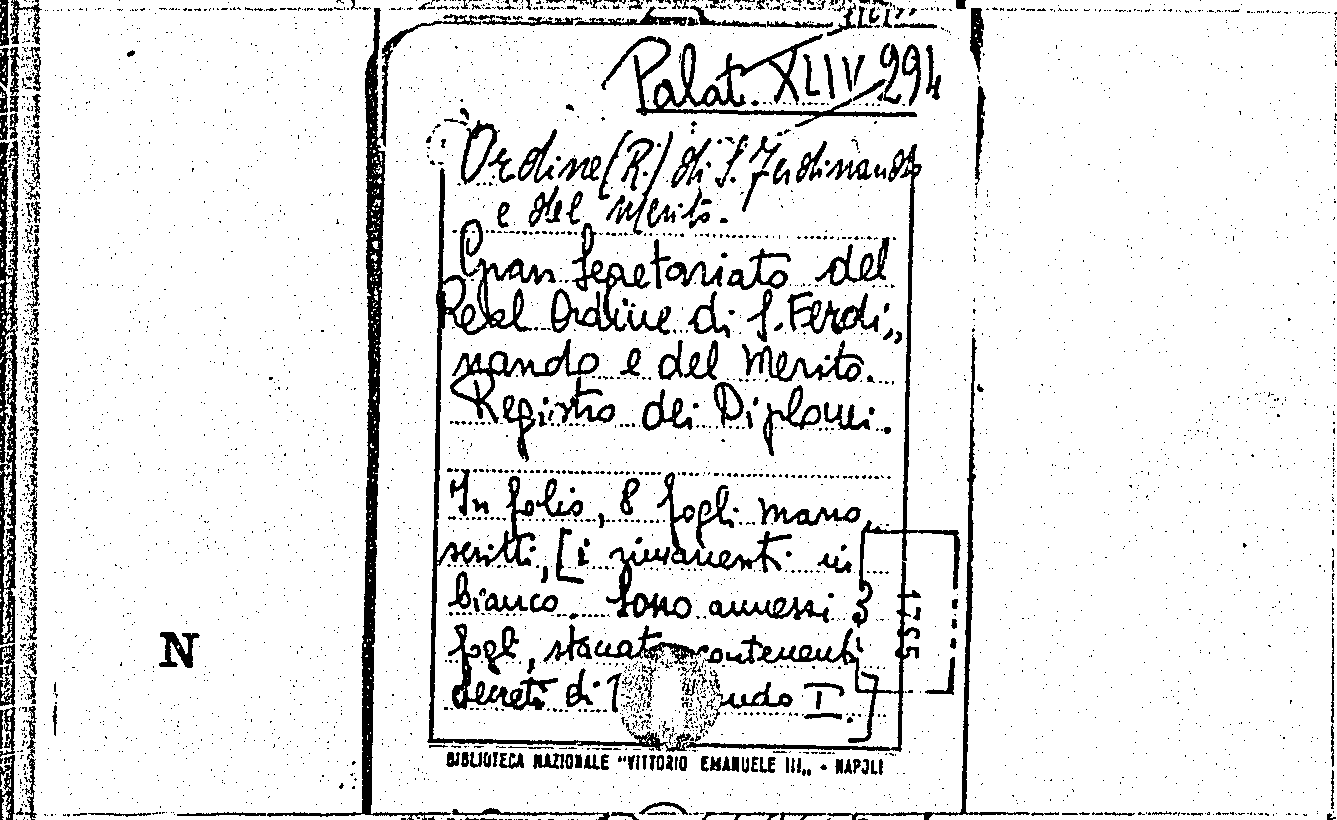 Palat. XLIV 294
Ordine (R.) di S. Ferdinando
e del merito.
Gran Segretariato del
Real Ordine di S. Ferdi„
nando e del Merito.
Registro dei Diplomi.
In folio, 8 fogli mano„
scritti, [i rimanenti in
bianco. Sono annessi 3
fogli, staccati contenenti
decreti di ando I.]
1755
N
BIBLIOTECA NAZIONALE "VITTORIO EMANUELE III„ - NAPOLI